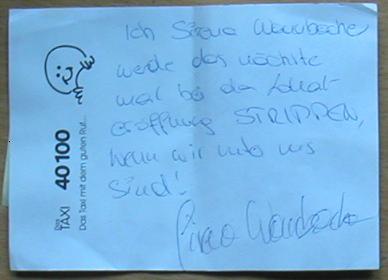 Ich Simone Wambacher
werde das nächste
mal bei der Lokal-
eröffnung STRIPPEN,
wenn wir unter uns
sind!
Die
TAXI 40100
Das Taxi mit dem guten Ruf...